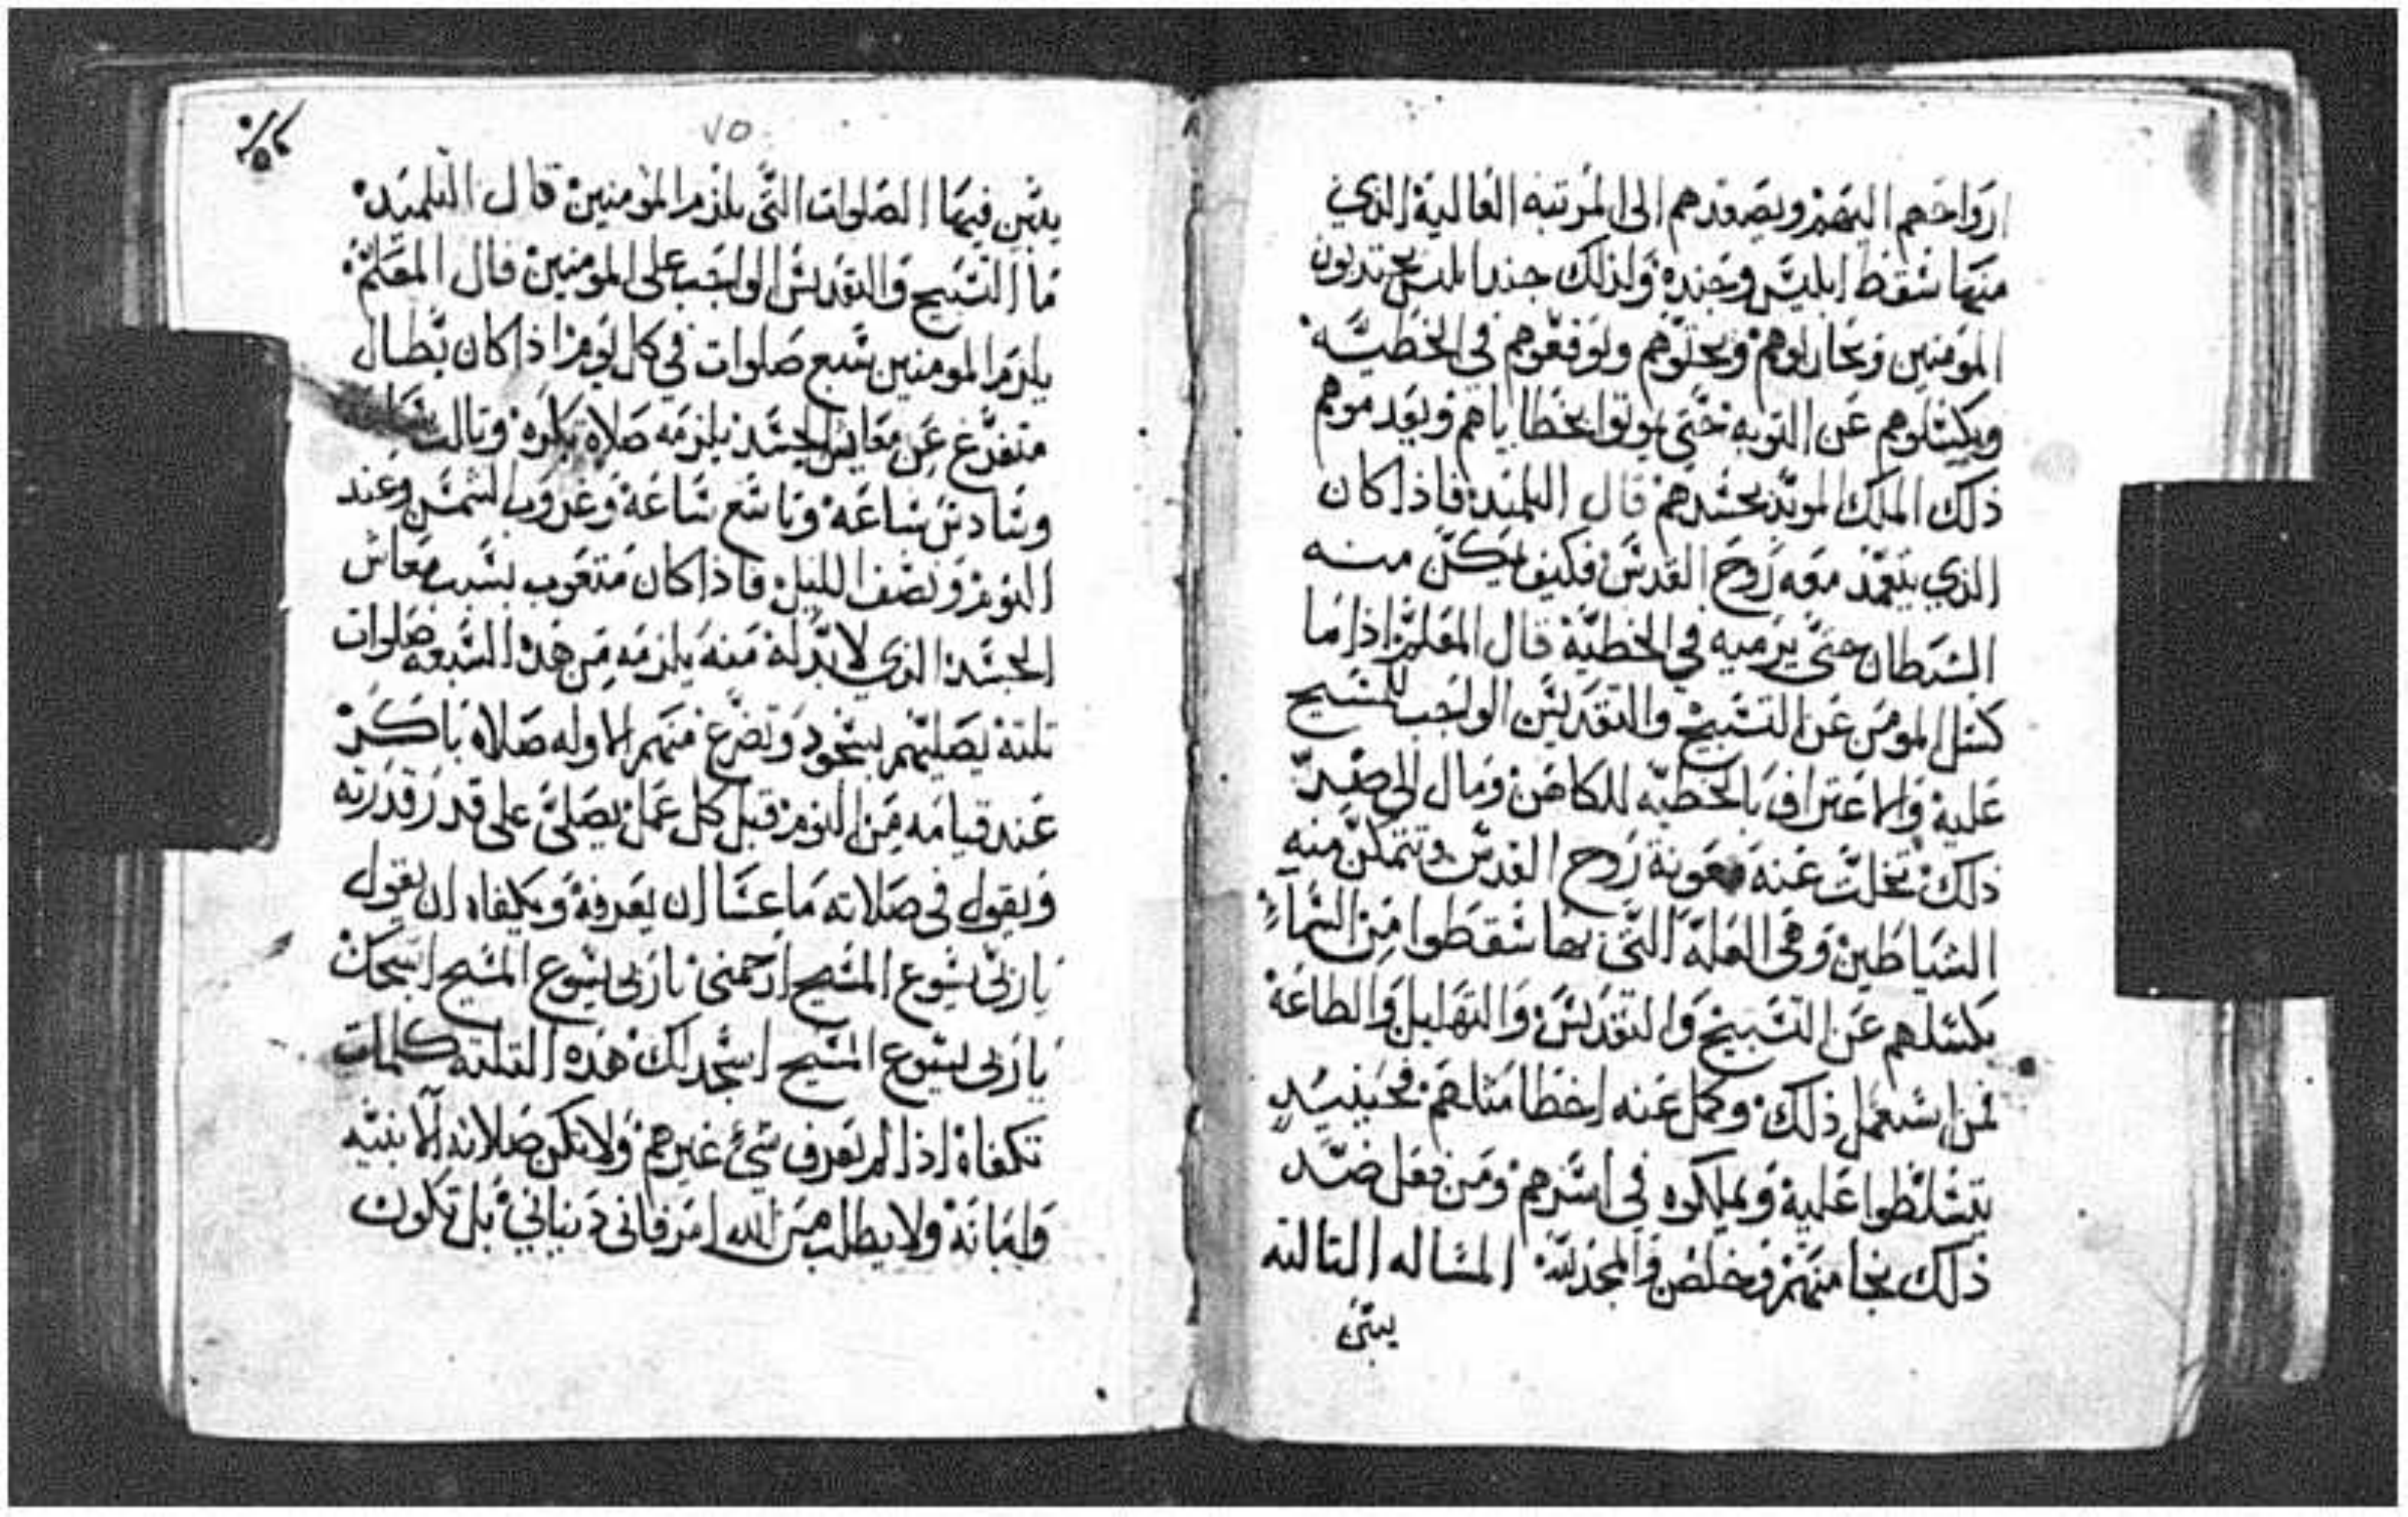 ارواحهم اليهم ويصعدهم الى المرتبه العالية الذي
منها سقط ابليس وجنده ولذلك جند ابليس يجتدبون
المومنين ويحاربوهم ويحلوهم ويوقعوهم في الخطيه
ويكسلوهم عن التوبه حتى يموتوا بخطاياهم ويعدموهم
ذلك الملك الموبد بحسدهم قال التلميد فاذا كان
الذي يتعمد معه روح القدس فكيف يمكن منه
الشيطان حتى يرميه في الخطية قال المعلم اذا ما
كسل المومن عن التسبيح والتقديس الواجب للمسيح
عليه والاعتراف بالخطيه للكاهن ومال الى ضد
ذلك تخلت عنه معونة روح القدس وتتمكن منه
الشياطين وهى العلة التي بها سقطوا من السماء
بكسلهم عن التسبيح والتقديس والتهليل والطاعة
فمن استعمل ذلك وكمل عنه اخطا مثلهم فحينيد
يتسلطوا عليه ويملكوه في اسرهم ومن فعل ضد
ذلك نجا منهم وخلص والمجد لله المساله التالته
يبين
٧٥
يبين فيها الصلوات التي يلزم المومنين قال التلميد
ما التسبيح والتقديس الواجب على المومنين قال المعلم
يلزم المومنين سبع صلوات في كل يوم اذا كان بطال
متفرغ عن معايش الجسد يلزمه صلاة بكره وتالت ساعه
وسادس ساعة وتاسع ساعة وغروب الشمس وعند
النوم ونصف الليل فاذا كان متعوب بسبب معاش
الجسد الذي لا بد له منه يلزمه من هده السبعه صلوات
تلتة يصليهم بسجود وتضرع منهم الاوله صلاة باكر
عند قيامه من النوم قبل كل عمل يصلي على قدر قدرته
ويقول في صلاته ما عسا ان يعرفه ويكفاه ان يقول
يا ربي يسوع المسيح ارحمني يا ربي يسوع المسيح اسبحك
يا ربي يسوع المسيح اسجد لك هذه التلته كلمات
تكفاه اذا لم يعرف شيء غيرهم ولا تكن صلاته الا بنيه
وامانة ولا يطلب من الله امر فاني دنياني بل تكون